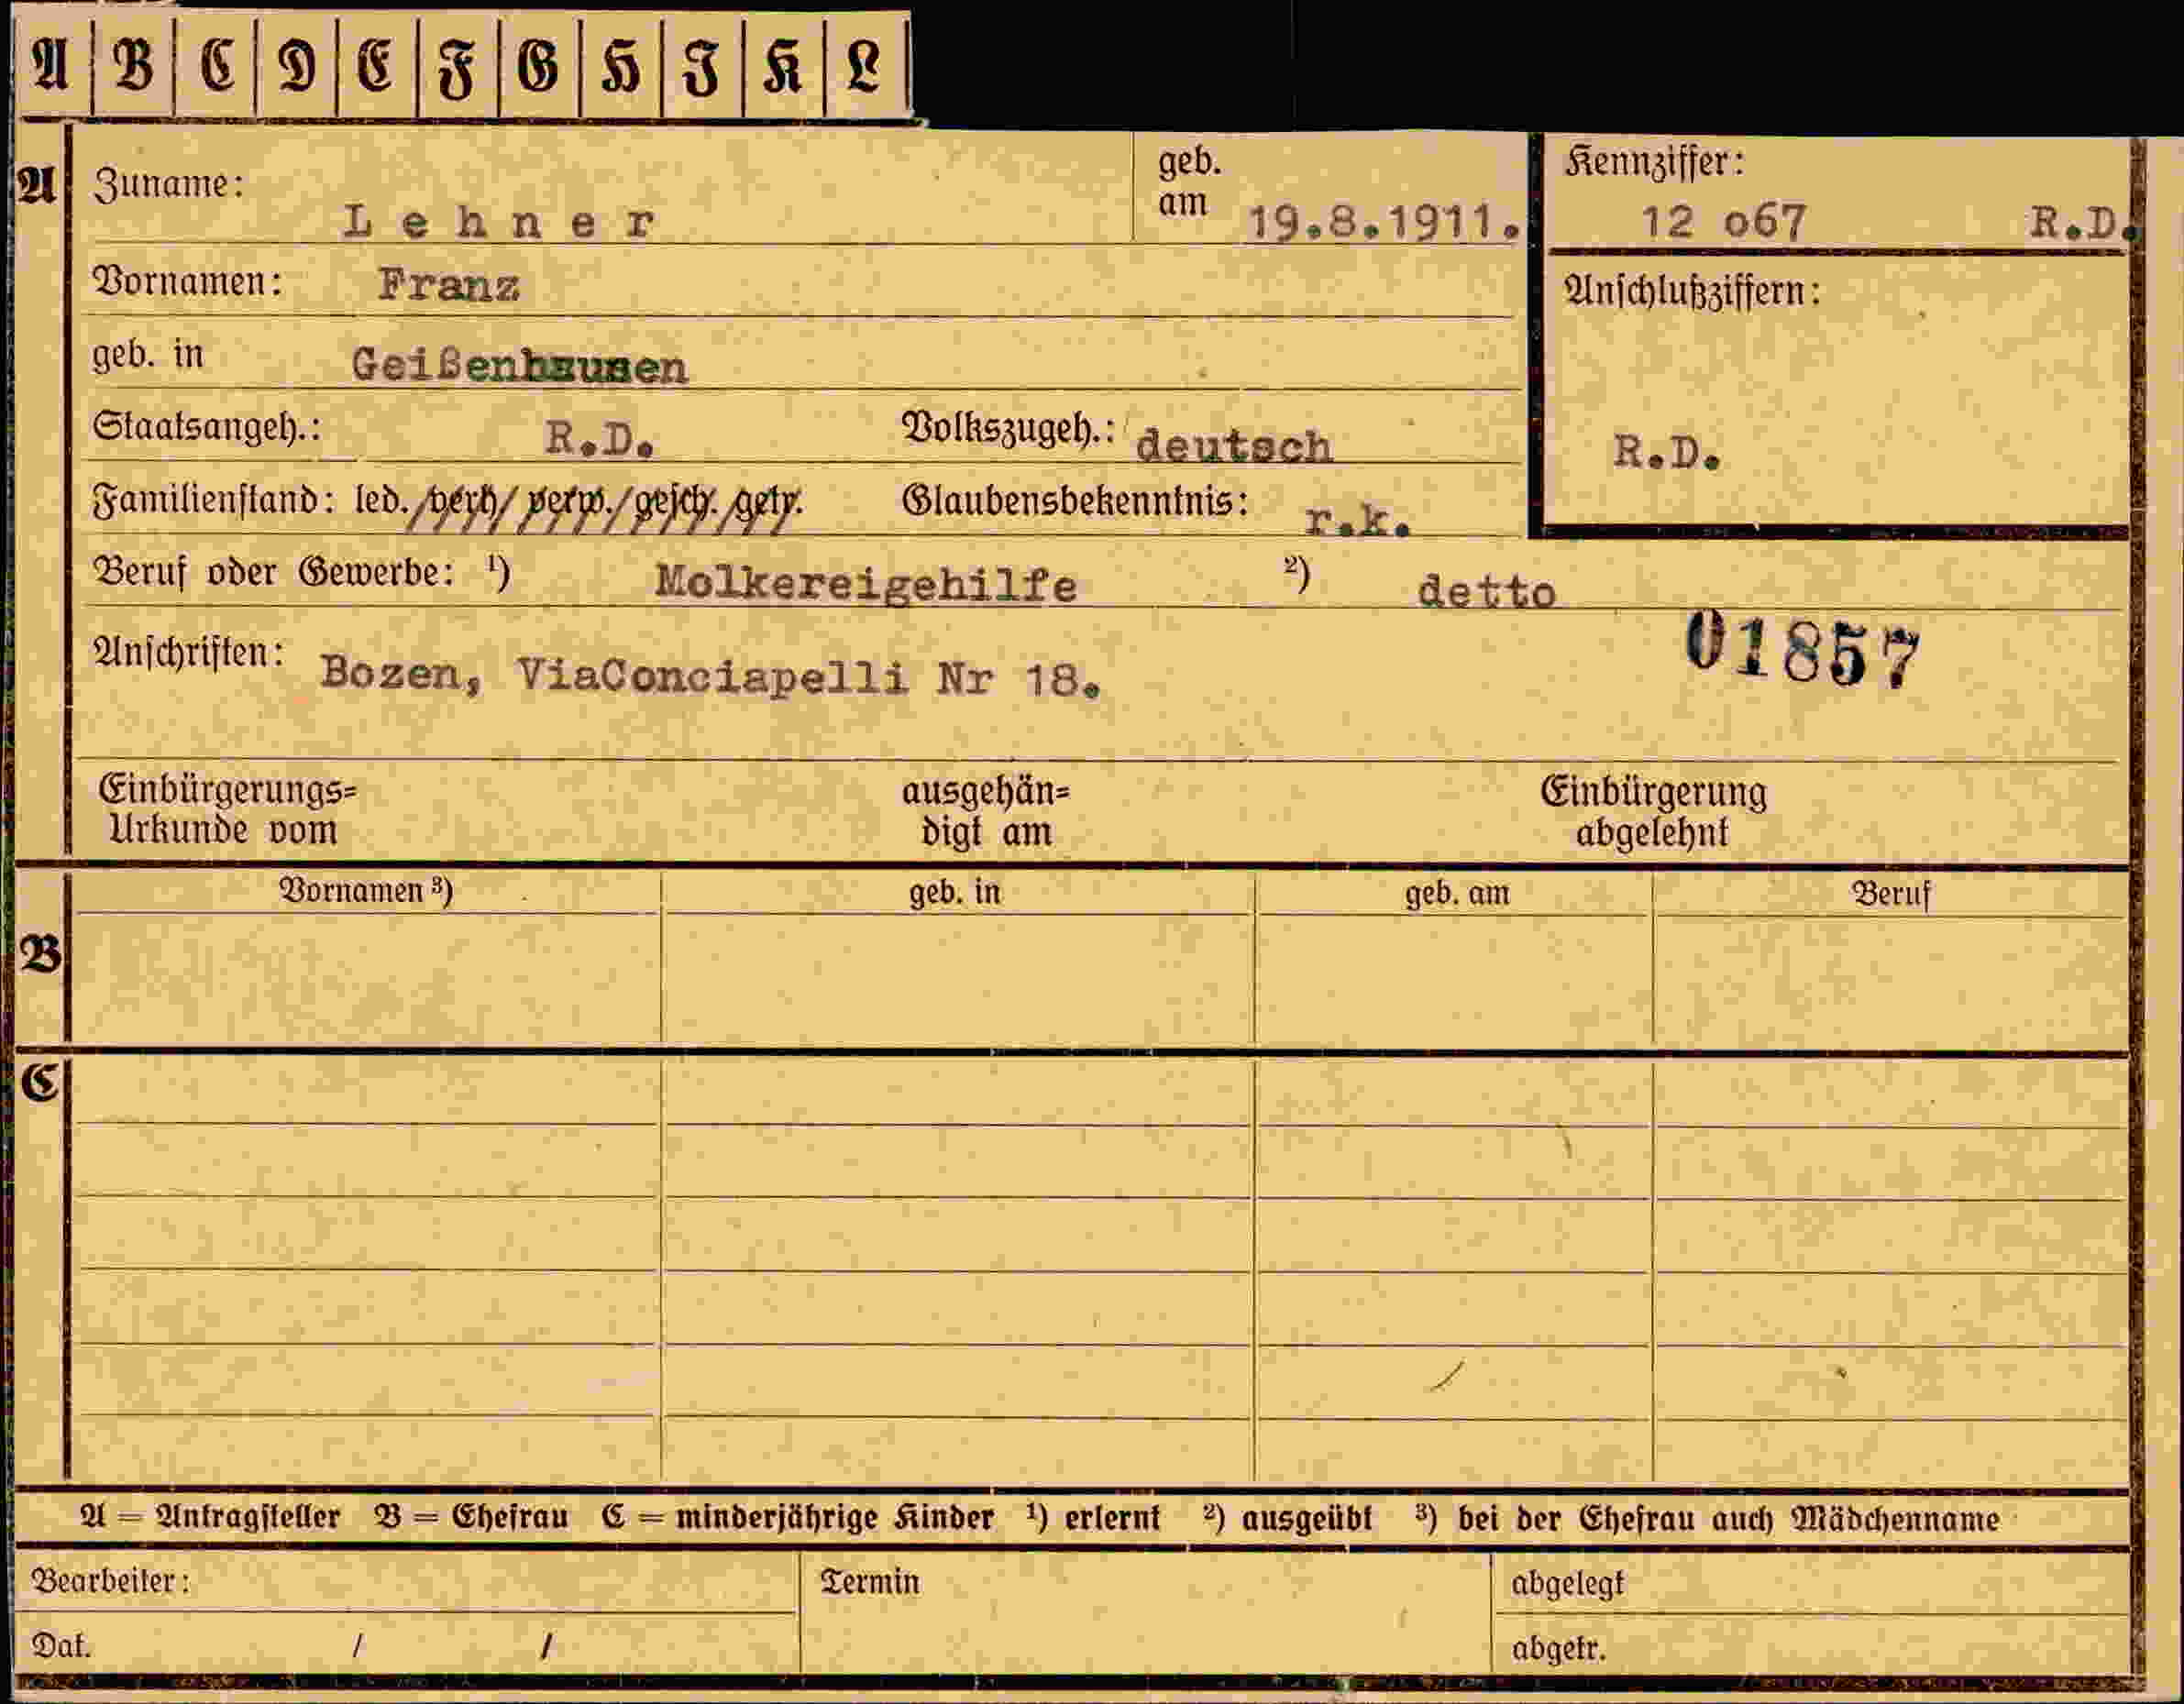 A B C D E F G H I K L
A Zuname: Lehner geb. am 19.8.1911. Kennziffer: 12 o67 R.D.
Vornamen: Franz Anschlußziffern:
geb. in Geißenhausen
Staatsangeh.: R.D. Volkszugeh.: deutsch R.D.
Familienstand: led./verh/verw./gesch./getr. Glaubensbekenntnis: r.k.
Beruf oder Gewerbe: ¹) Molkereigehilfe ²) detto
01857
Anschriften: Bozen, ViaConciapelli Nr 18.
Einbürgerungs= ausgehän= Einbürgerung
Urkunde vom digt am abgelehnt
Vornamen ³) geb. in geb. am Beruf
B
C
A = Antragsteller B = Ehefrau C = minderjährige Kinder ¹) erlernt ²) ausgeübt ³) bei der Ehefrau auch Mädchenname
Bearbeiter: Termin abgelegt
Dat. / / abgetr.